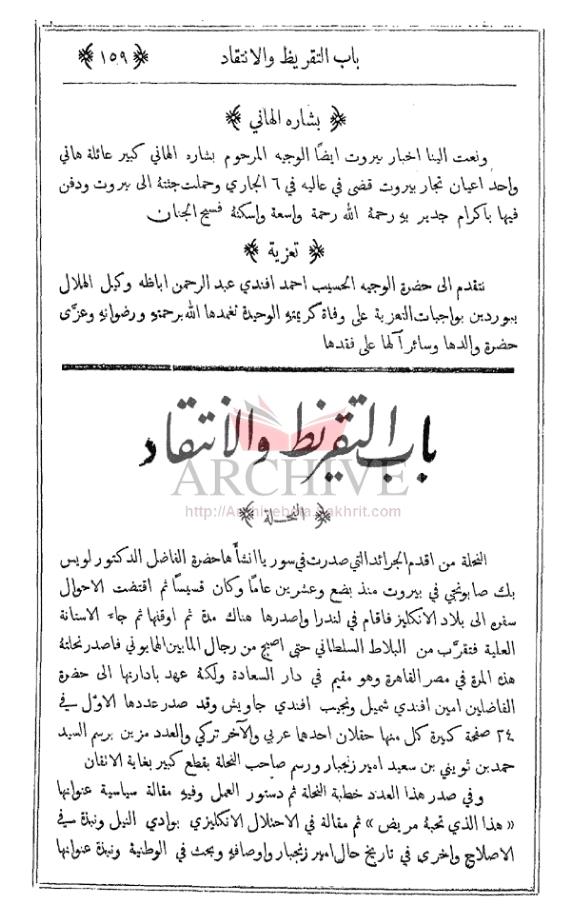 باب التقريظ والانتقاد ﴿ ١٥٩ ﴾
﴿ بشاره الهاني ﴾
ونعت الينا اخبار بيروت ايضًا الوجيه المرحوم بشاره الهاني كبير عائلة هاني
واحد اعيان تجار بيروت قضى في عاليه في ٦ الجاري وحملت جثته الى بيروت ودفن
فيها باكرام جدير به رحمهُ الله رحمة واسعة واسكنهُ فسيح الجنان
﴿ تعزية ﴾
نتقدم الى حضرة الوجيه الحسيب احمد افندي عبد الرحمن اباظه وكيل الهلال
ببوردين بواجبات التعزية على وفاة كريمتهِ الوحيدة تغمدها الله برحمتهِ ورضوانهِ وعزَّى
حضرة والدها وسائر آلها على فقدها
باب التقريظ والانتقاد
ARCHIVE
http://Archivebeta.Sakhrit.com
﴿ النحلة ﴾
النحلة من اقدم الجرائد التي صدرت في سوريا انشأها حضرة الفاضل الدكتور لويس
بك صابونجي في بيروت منذ بضع وعشرين عامًا وكان قسيسًا ثم اقتضت الاحوال
سفره الى بلاد الانكليز فاقام في لندرا واصدرها هناك مدة ثم اوقفها ثم جاء الاستانة
العلية فتقرَّب من البلاط السلطاني حتى اصبح من رجال المابين الهمايوني فاصدر نحلتهُ
هذه المرة في مصر القاهرة وهو مقيم في دار السعادة ولكنهُ عهد بادارتها الى حضرة
الفاضلين امين افندي شميل ونجيب افندي جاويش وقد صدر عددها الاوَّل في
٢٤ صفحة كبيرة كل منها حقلان احدهما عربي والآخر تركي والعدد مزين برسم السيد
حمد بن ثويني بن سعيد امير زنجبار ورسم صاحب النحلة بقطع كبير بغاية الاتقان
وفي صدر هذا العدد خطبة النحلة ثم دستور العمل وفيهِ مقالة سياسية عنوانها
« هذا الذي تحبهُ مريض » ثم مقالة في الاحتلال الانكليزي بوادي النيل ونبذة في
الاصلاح واخرى في تاريخ حال امير زنجبار واوصافهِ وبحث في الوطنية ونبذة عنوانها